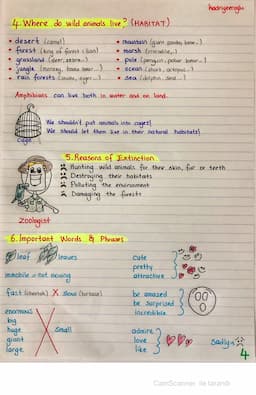 hadriyeeroglu
4. Where do wild animals live? (HABITAT)
• desert (camel)
• mountain (giant panda, bear..)
• forest (king of forest: lion)
• marsh (crocodile,..)
• grassland (deer, zebra..)
• pole (penguin, polar bear..)
• jungle (monkey, koala bear...)
• ocean (shark, octopus...)
• rain forests (snake, tiger...)
• sea (dolphin, seal..)
Amphibians can live both in water and on land.
We shouldn't put animals into cages!
We should let them live in their natural habitats!
cage
5. Reasons of Extinction
Hunting wild animals for their skin, fur or teeth
Destroying their habitats
Polluting the environment
Damaging the forests
zoologist
6. Important Words & Phrases
leaf
leaves
cute
pretty
attractive
immobile = not moving
fast (cheetah) X slow (tortoise)
be amazed
be surprised
incredible
enormous
big
huge
giant
large
small
admire
love
like
sadly
4
CamScanner ile tarandı